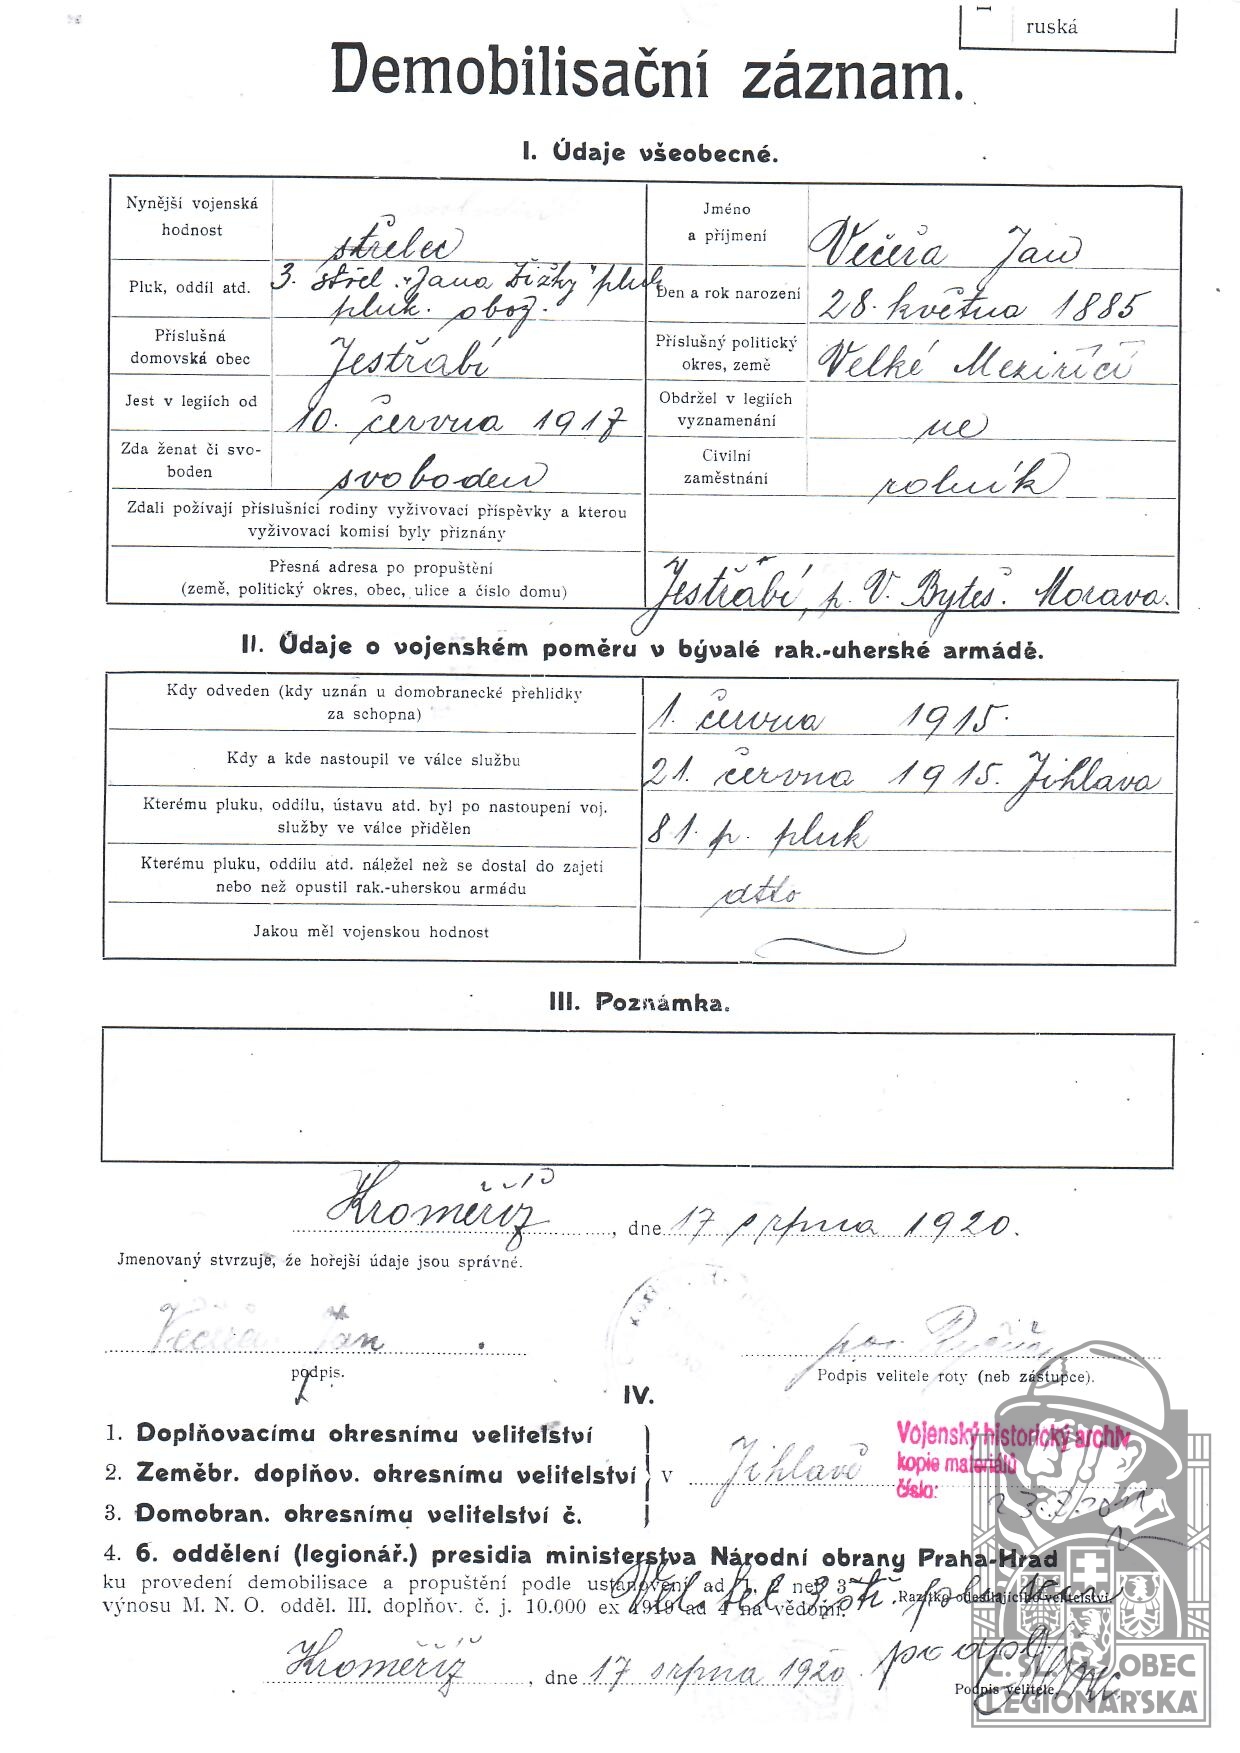 ruská
Demobilisační záznam.
I. Údaje všeobecné.
Nynější vojenská hodnost
střelec
Jméno a příjmení
Večeřa Jan
Pluk, oddíl atd.
3. střel. "Jana Žižky" pluk
pluk. oboz.
Den a rok narození
28. května 1885
Příslušná domovská obec
Jestřabí
Příslušný politický okres, země
Velké Meziříčí
Jest v legiích od
10. června 1917
Obdržel v legiích vyznamenání
ne
Zda ženat či svo-
boden
svoboden
Civilní zaměstnání
rolník
Zdali požívají příslušníci rodiny vyživovací příspěvky a kterou
vyživovací komisí byly přiznány
Přesná adresa po propuštění
(země, politický okres, obec, ulice a číslo domu)
Jestřabí, p. V. Byteš. Morava.
II. Údaje o vojenském poměru v bývalé rak.-uherské armádě.
Kdy odveden (kdy uznán u domobranecké přehlídky
za schopna)
1. června 1915.
Kdy a kde nastoupil ve válce službu
21. června 1915. Jihlava
Kterému pluku, oddílu, ústavu atd. byl po nastoupení voj.
služby ve válce přidělen
81. p. pluk
Kterému pluku, oddílu atd. náležel než se dostal do zajetí
nebo než opustil rak.-uherskou armádu
dtto
Jakou měl vojenskou hodnost
III. Poznámka.
Kroměříž, dne 17 srpna 1920.
Jmenovaný stvrzuje, že hořejší údaje jsou správné.
Večeřa Jan
podpis.
Podpis velitele roty (neb zástupce).
IV.
1. Doplňovacímu okresnímu velitelství
2. Zeměbr. doplňov. okresnímu velitelství
v Jihlavě
3. Domobran. okresnímu velitelství č.
Vojenský historický archiv
kopie materiálů
číslo:
4. 6. oddělení (legionář.) presidia ministerstva Národní obrany Praha-Hrad
ku provedení demobilisace a propuštění podle ustanovení ad 1, 2 neb 3
výnosu M. N. O. odděl. III. doplňov. č. j. 10.000 ex 1919 ad 4 na vědomí.
Velitel 3. stř. pluku
Razítko odesílajícího velitelství.
Kroměříž, dne 17 srpna 1920.
Podpis velitele.
Č. S. OBEC
LEGIONÁŘSKÁ